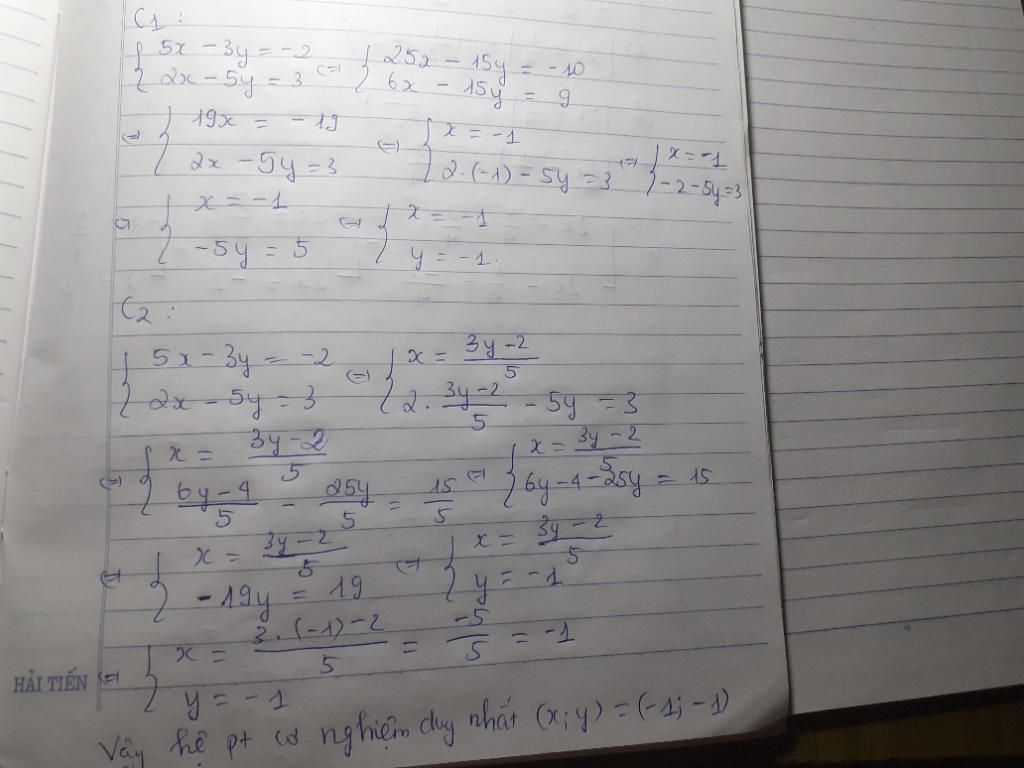 C1 :
{ 5x - 3y = -2 ; 2x - 5y = 3 ⇔ { 25x - 15y = -10 ; 6x - 15y = 9
⇔ { 19x = -19 ; 2x - 5y = 3 ⇔ { x = -1 ; 2.(-1) - 5y = 3 ⇔ { x = -1 ; -2 - 5y = 3
⇔ { x = -1 ; -5y = 5 ⇔ { x = -1 ; y = -1.
C2 :
{ 5x - 3y = -2 ; 2x - 5y = 3 ⇔ { x = (3y - 2)/5 ; 2. (3y - 2)/5 - 5y = 3
⇔ { x = (3y - 2)/5 ; (6y - 4)/5 - 25y/5 = 15/5 ⇔ { x = (3y - 2)/5 ; 6y - 4 - 25y = 15
⇔ { x = (3y - 2)/5 ; -19y = 19 ⇔ { x = (3y - 2)/5 ; y = -1
⇔ { x = (3.(-1) - 2)/5 = -5/5 = -1 ; y = -1
HẢI TIẾN
Vậy hệ pt có nghiệm duy nhất (x; y) = (-1; -1)